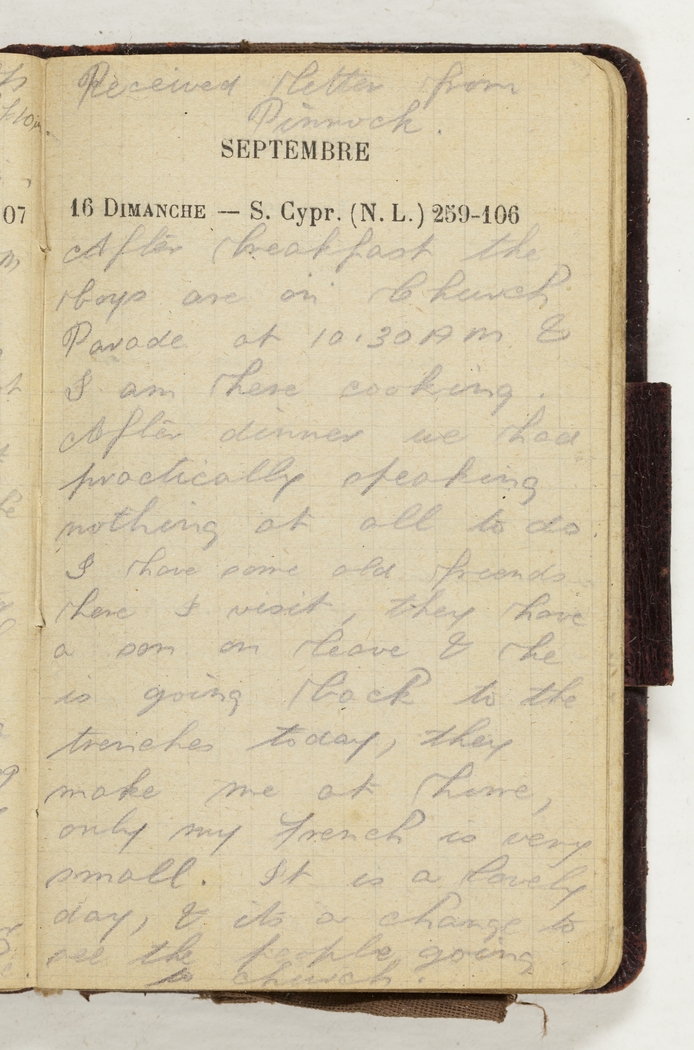 Received letter from
Pinnock.
SEPTEMBRE
16 DIMANCHE — S. Cypr. (N. L.) 259-106
After breakfast the
boys are on Church
Parade at 10.30 AM &
I am here cooking.
After dinner we had
practically speaking
nothing at all to do
I have some old friends
here I visit, they have
a son on leave & he
is going back to the
trenches today, they
make me at home,
only my French is very
small. It is a lovely
day, & its a change to
see the people going
to church.
07